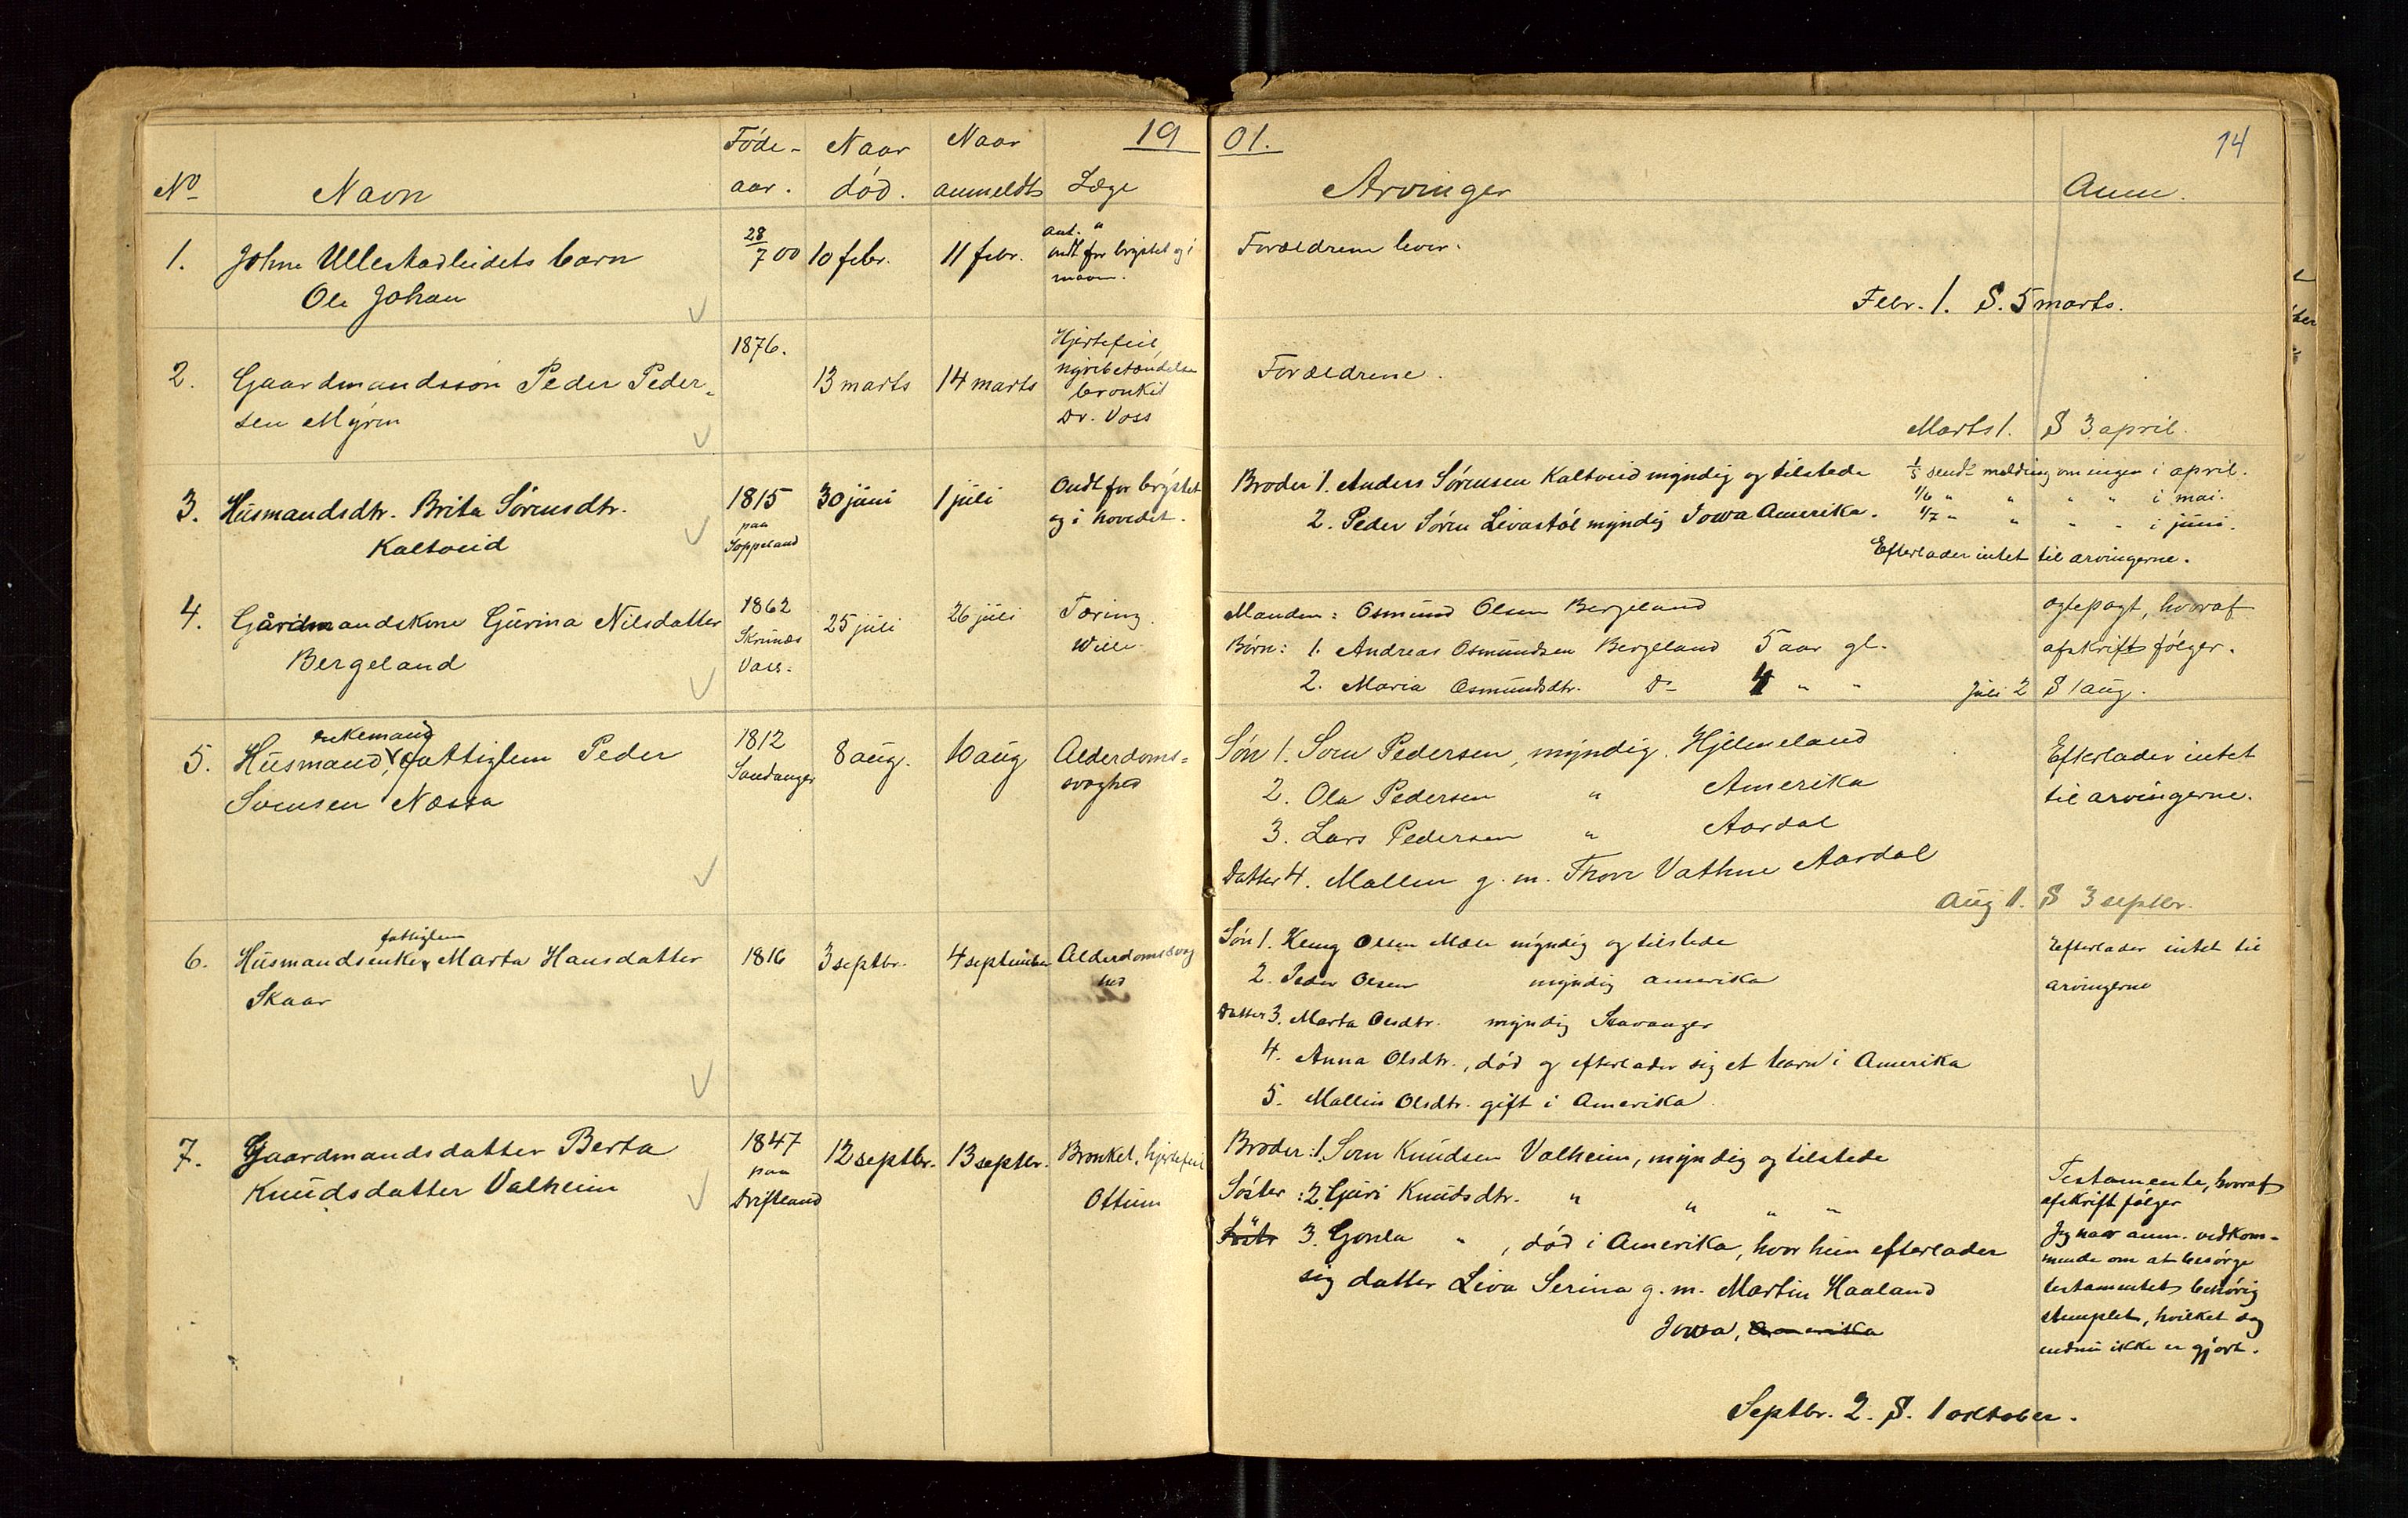 1901.
14
No Navn Föde-aar. Naar död. Naar anmeldt Læge Arvinger Anm.
1. Johne Ullestadleidets barn 28/7 00 10 febr. 11 febr. ant. "
ondt for brystet og i
maven. Forældrene lever.
Ole Johan
Febr. 1. S. 5 marts.
2. Gaardmandssön Peder Peder-
sen Myren
1876. 13 marts 14 marts
Hjertefeil,
nyrebetændelse
bronkit
Dr. Voss
Forældrene.
Marts 1. S 3 april.
3. Husmandsdtr. Brita Sörensdtr.
Kaltveid
1815
paa
Soppeland
30 juni 1 juli
Ondt for brystet
og i hovedet.
Broder 1. Anders Sörensen Kaltveid myndig og tilstede
2. Peder Sören Livastöl myndig Iowa Amerika.
1/5 sendt melding om ingen i april.
1/6 " " " " i mai.
1/7 " " " " i juni.
Efterlader intet til arvingerne.
4. Gårdmandskone Gurina Nilsdatter
Bergeland
1862
Skrunæs
Vats.
25 juli 26 juli
Tæring.
Wille.
Manden: Osmund Olsen Bergeland
Börn: 1. Andreas Osmundsen Bergeland 5 aar gl.
2. Maria Osmundsdtr. Do 4 " "
ægtepagt, hvoraf
afskrift fölger.
Juli 2 S 1 aug.
5. Husmand, enkemand, fattiglem Peder
Svensen Næssa
1812
Sandanger
8 aug. 10 aug
Alderdoms-
svaghed
Sön 1. Sven Pedersen, myndig. Hjelmeland
2. Ola Pedersen " Amerika
3. Lars Pedersen " Aardal
Datter 4. Mallen g. m. Thore Vathne Aardal
Efterlader intet
til arvingerne.
Aug 1. S 3 septbr.
6. Husmandsenke, fattiglem Marta Hansdatter
Skaar
1816 3 septbr. 4 september
Alderdomssvag
hed
Sön 1. Olsen Mæle myndig og tilstede
2. Peder Olsen myndig amerika
Datter 3. Marta Olsdtr. myndig Stavanger
4. Anna Olsdtr., död og efterlader sig et barn i Amerika
5. Mallin Olsdtr. gift i Amerika
Efterlader intet til
arvingerne
7. Gaardmandsdatter Berta
Knudsdatter Valheim
1847
paa
Driftland
12 septbr. 13 septbr.
Bronket. hjertefeil
Ottum
Broder: 1. Sven Knudsen Valheim, myndig og tilstede
Söster: 2. Guri Knudsdtr. " " " "
Söster 3. Gonla " , död i Amerika, hvor hun efterlader
sig datter Liva Serina g. m. Martin Haaland
Iowa, Amerika
Testamente, hvoraf
afskrift fölger
Jeg har anm. vedkom-
mende om at besörge
testamentet behörig
stemplet, hvilket dog
endnu ikke er gjort.
Septbr. 2. S. 1 oktober.